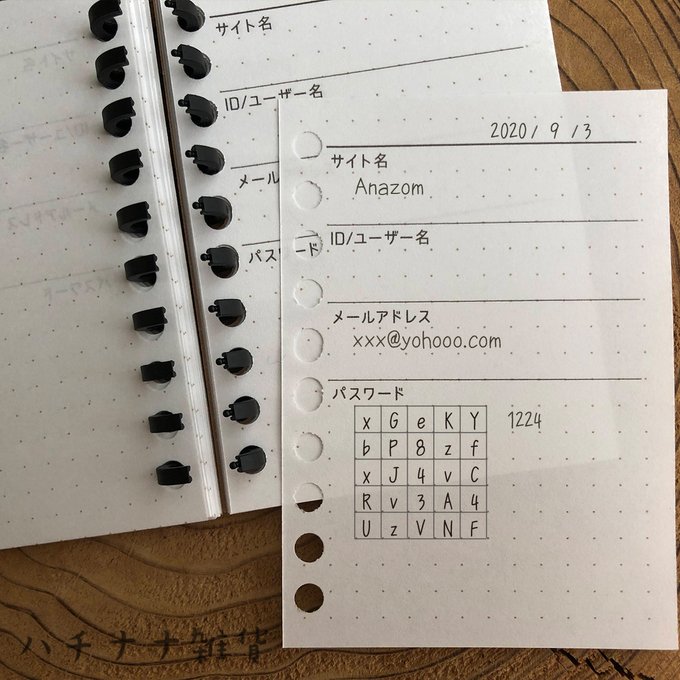 サイト名
ID/ユーザー名
メール
パスワード
2020/ 9 /3
サイト名
Anazom
ID/ユーザー名
メールアドレス
xxx@yohooo.com
パスワード
x G e K Y 1224
b P 8 z f
x J 4 v C
R v 3 A 4
U z V N F
ハチナナ雑貨